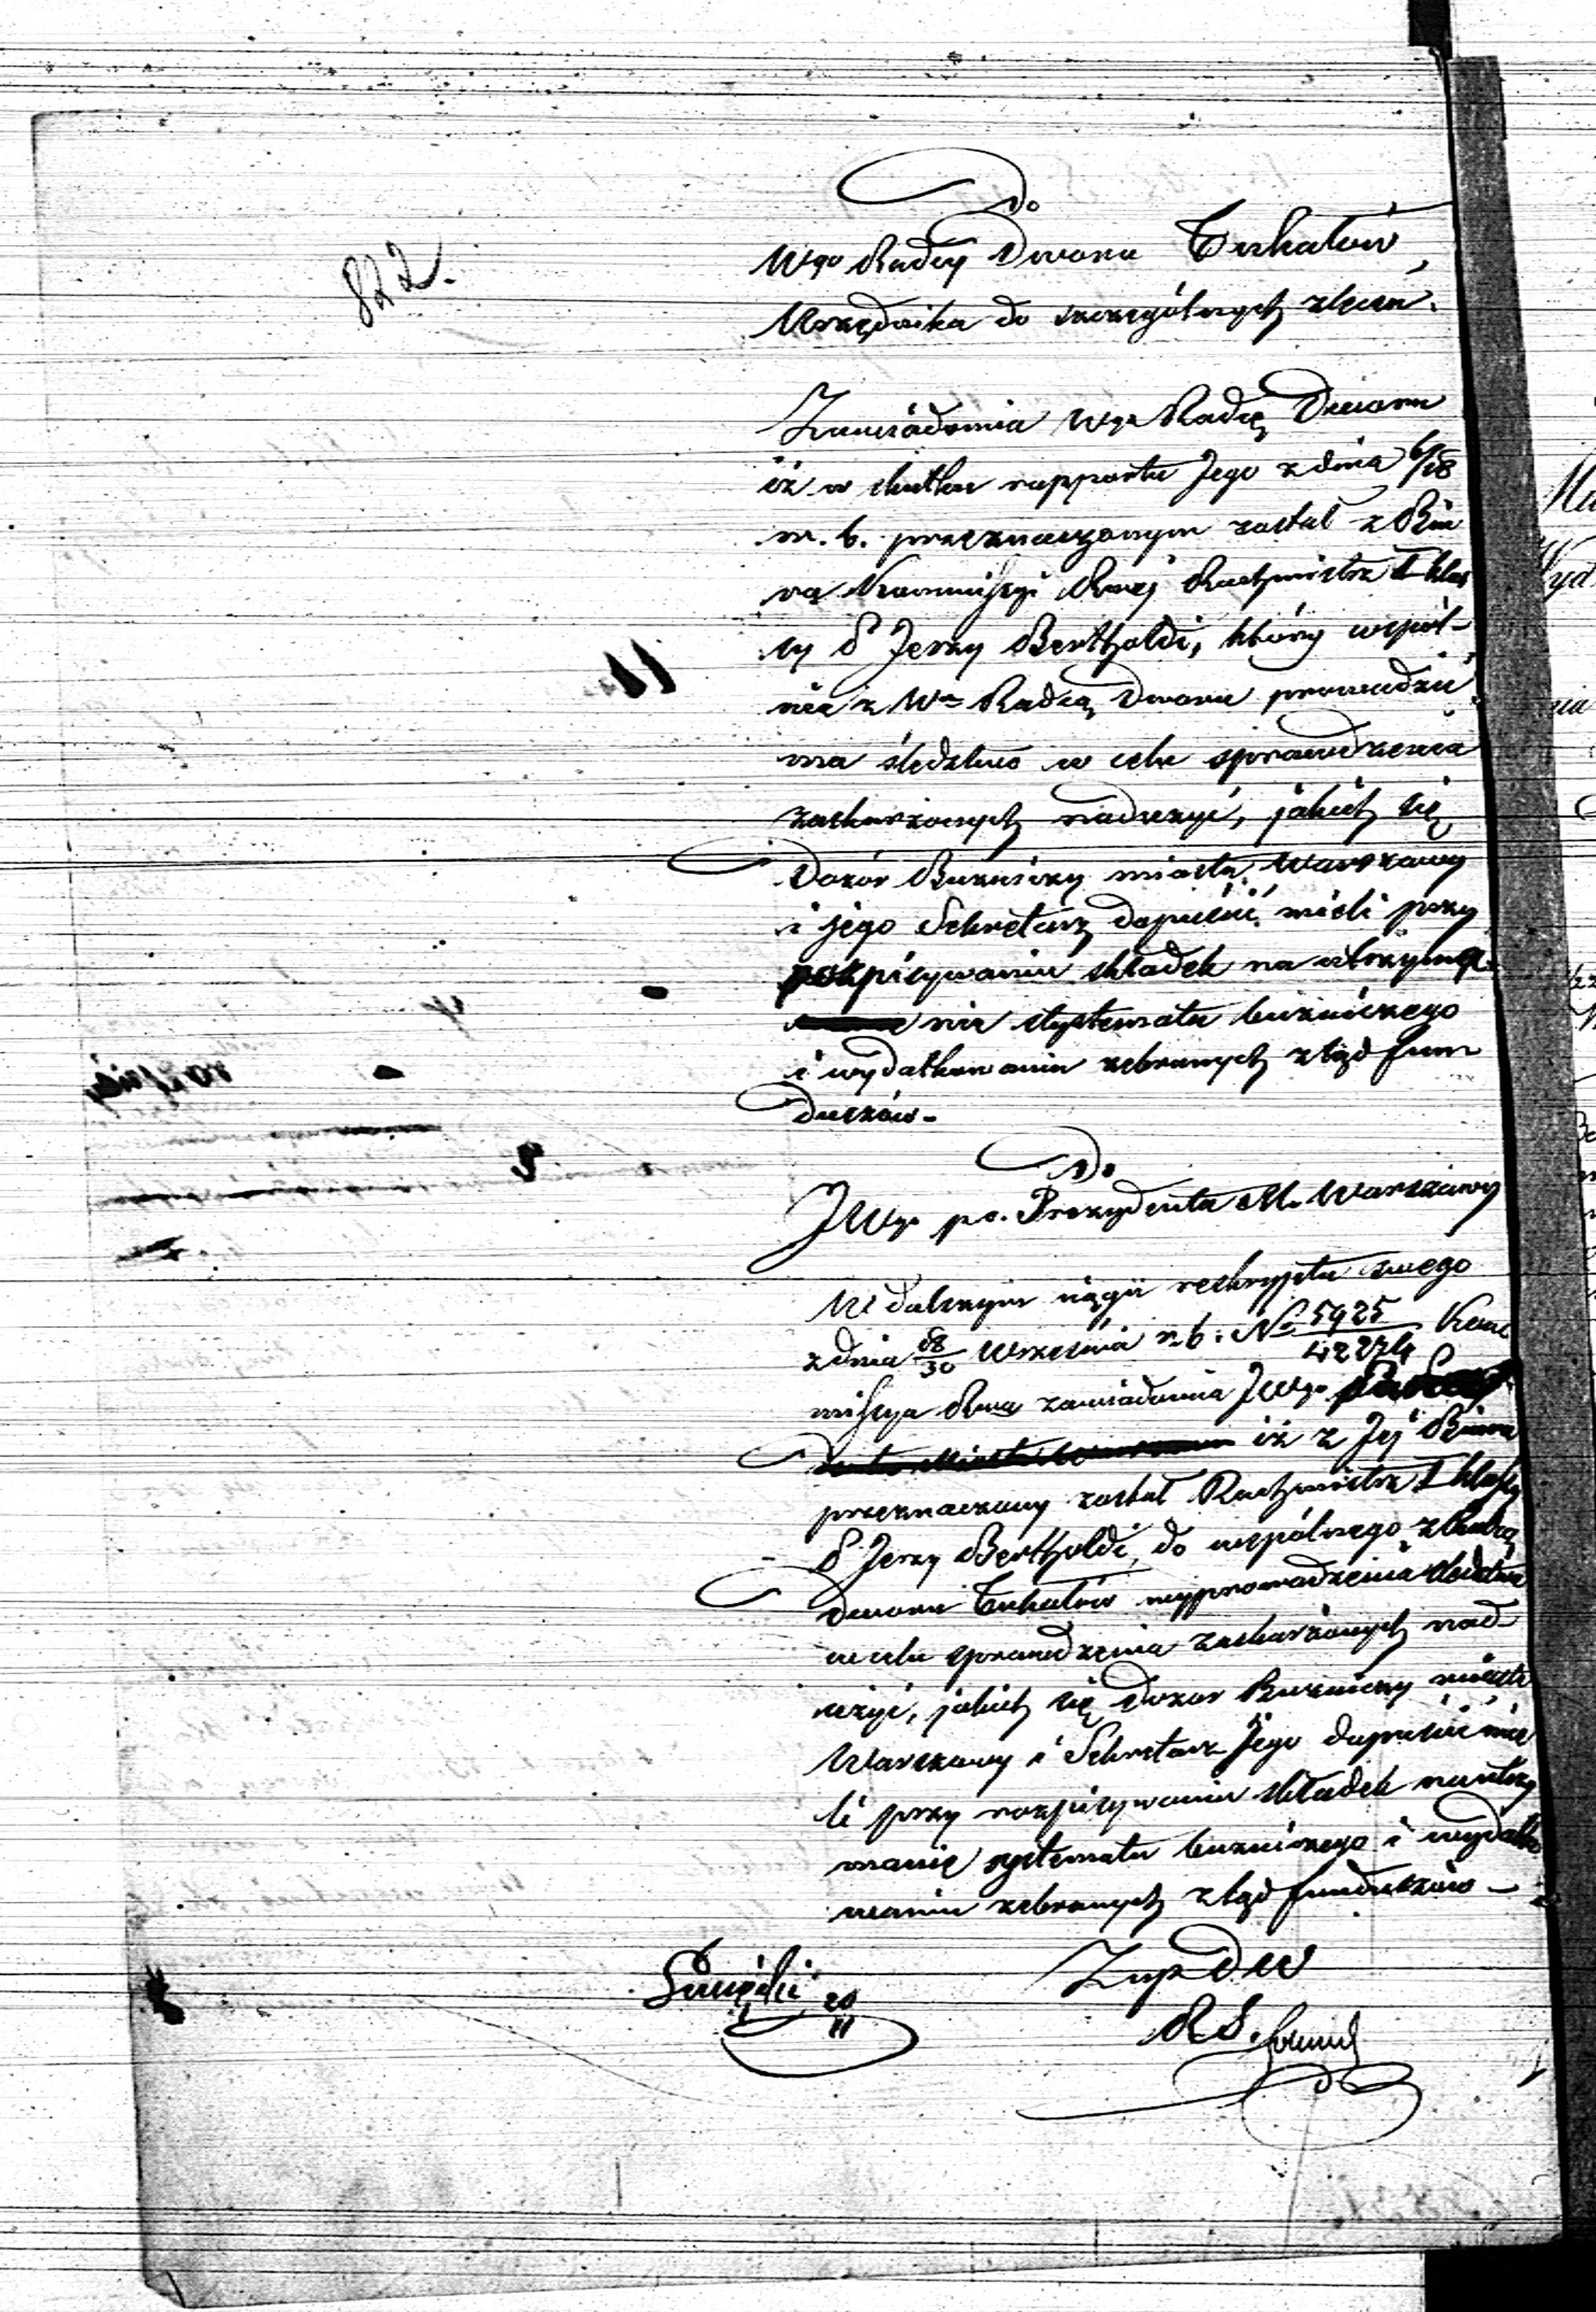 822.
Do
Wgo Radcy Dworu Tukałów
Urzędnika do szczególnych zleceń.
Zawiadomia Wgo Radcę Dworu
iż w skutku rapportu Jego z dnia 6/18
m. b. przeznaczonym został z Biu
ra Kommissyi Rząj Rachmistrz I klas
sy P Jerzy Bertholdi, który wspól-
nie z Wm Radcą Dworu prowadzić
ma śledztwo w celu sprawdzenia
zaskarżonych nadużyć, jakich się
Dozór Bużniczy miasta Warszawy
i jego Sekretarz dopuścić mieli przy
rozpisywaniu składek na utrzyma
nie systematu bużniczego
i wydatkowaniu zebranych ztąd fun
duszów -
Do
JWgo po. Prezydenta M. Warszawy
W dalszym ciągu reskryptu swego
z dnia 18/30 Września r. b. No 5925/42274 Kom
missya Rząwa zawiadamia JWgo
iż z Jej Biura
przeznaczony został Rachmistrz I klassy
P Jerzy Bertholdi, do wspólnego z Radcą
Dworu Tukałów wyprowadzenia śledztwa
w celu sprawdzenia zaskarżonych nad-
użyć, jakich się Dozór Bużniczy miasta
Warszawy i Sekretarz Jego dopuścić mie
li przy rozpisywaniu składek na utrzy
manie systematu bużniczego i wydatko
waniu zebranych ztąd funduszów -